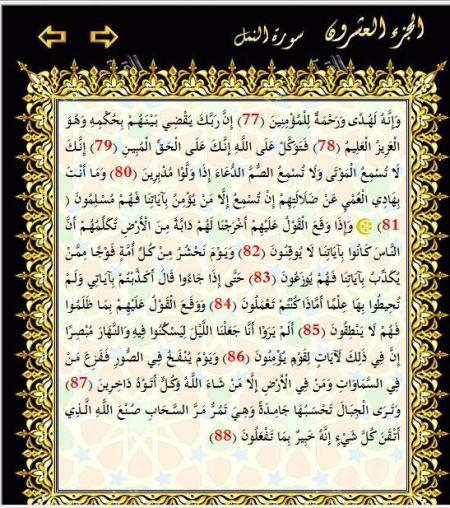 الجزء العشرون
سورة النمل
وَإِنَّهُ لَهُدًى وَرَحْمَةٌ لِلْمُؤْمِنِينَ (77) إِنَّ رَبَّكَ يَقْضِي بَيْنَهُمْ بِحُكْمِهِ وَهُوَ
الْعَزِيزُ الْعَلِيمُ (78) فَتَوَكَّلْ عَلَى اللَّهِ إِنَّكَ عَلَى الْحَقِّ الْمُبِينِ (79) إِنَّكَ
لَا تُسْمِعُ الْمَوْتَى وَلَا تُسْمِعُ الصُّمَّ الدُّعَاءَ إِذَا وَلَّوْا مُدْبِرِينَ (80) وَمَا أَنْتَ
بِهَادِي الْعُمْيِ عَنْ ضَلَالَتِهِمْ إِنْ تُسْمِعُ إِلَّا مَنْ يُؤْمِنُ بِآيَاتِنَا فَهُمْ مُسْلِمُونَ (
81) وَإِذَا وَقَعَ الْقَوْلُ عَلَيْهِمْ أَخْرَجْنَا لَهُمْ دَابَّةً مِنَ الْأَرْضِ تُكَلِّمُهُمْ أَنَّ
النَّاسَ كَانُوا بِآيَاتِنَا لَا يُوقِنُونَ (82) وَيَوْمَ نَحْشُرُ مِنْ كُلِّ أُمَّةٍ فَوْجًا مِمَّنْ
يُكَذِّبُ بِآيَاتِنَا فَهُمْ يُوزَعُونَ (83) حَتَّى إِذَا جَاءُوا قَالَ أَكَذَّبْتُمْ بِآيَاتِي وَلَمْ
تُحِيطُوا بِهَا عِلْمًا أَمَّاذَا كُنْتُمْ تَعْمَلُونَ (84) وَوَقَعَ الْقَوْلُ عَلَيْهِمْ بِمَا ظَلَمُوا
فَهُمْ لَا يَنْطِقُونَ (85) أَلَمْ يَرَوْا أَنَّا جَعَلْنَا اللَّيْلَ لِيَسْكُنُوا فِيهِ وَالنَّهَارَ مُبْصِرًا
إِنَّ فِي ذَلِكَ لَآيَاتٍ لِقَوْمٍ يُؤْمِنُونَ (86) وَيَوْمَ يُنْفَخُ فِي الصُّورِ فَفَزِعَ مَنْ
فِي السَّمَاوَاتِ وَمَنْ فِي الْأَرْضِ إِلَّا مَنْ شَاءَ اللَّهُ وَكُلٌّ أَتَوْهُ دَاخِرِينَ (87)
وَتَرَى الْجِبَالَ تَحْسَبُهَا جَامِدَةً وَهِيَ تَمُرُّ مَرَّ السَّحَابِ صُنْعَ اللَّهِ الَّذِي
أَتْقَنَ كُلَّ شَيْءٍ إِنَّهُ خَبِيرٌ بِمَا تَفْعَلُونَ (88)